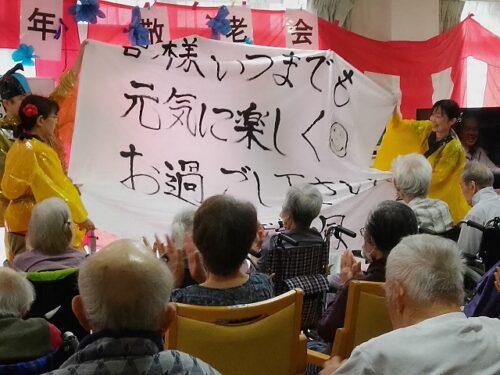 年敬老会
皆様いつまでも
元気に楽しく
お過ごし下さい